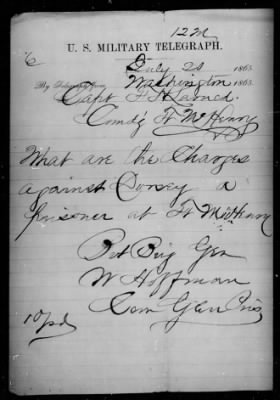 12 M
U. S. MILITARY TELEGRAPH.
6
July 20 1865.
By Telegraph from Washington 1865.
Capt F H Larned
Comdg Ft McHenry
What are the Charges
against Dorsey a
prisoner at Ft McHenry
Bvt Brig Gen
W Hoffman
Com Gen Pris
10 pd